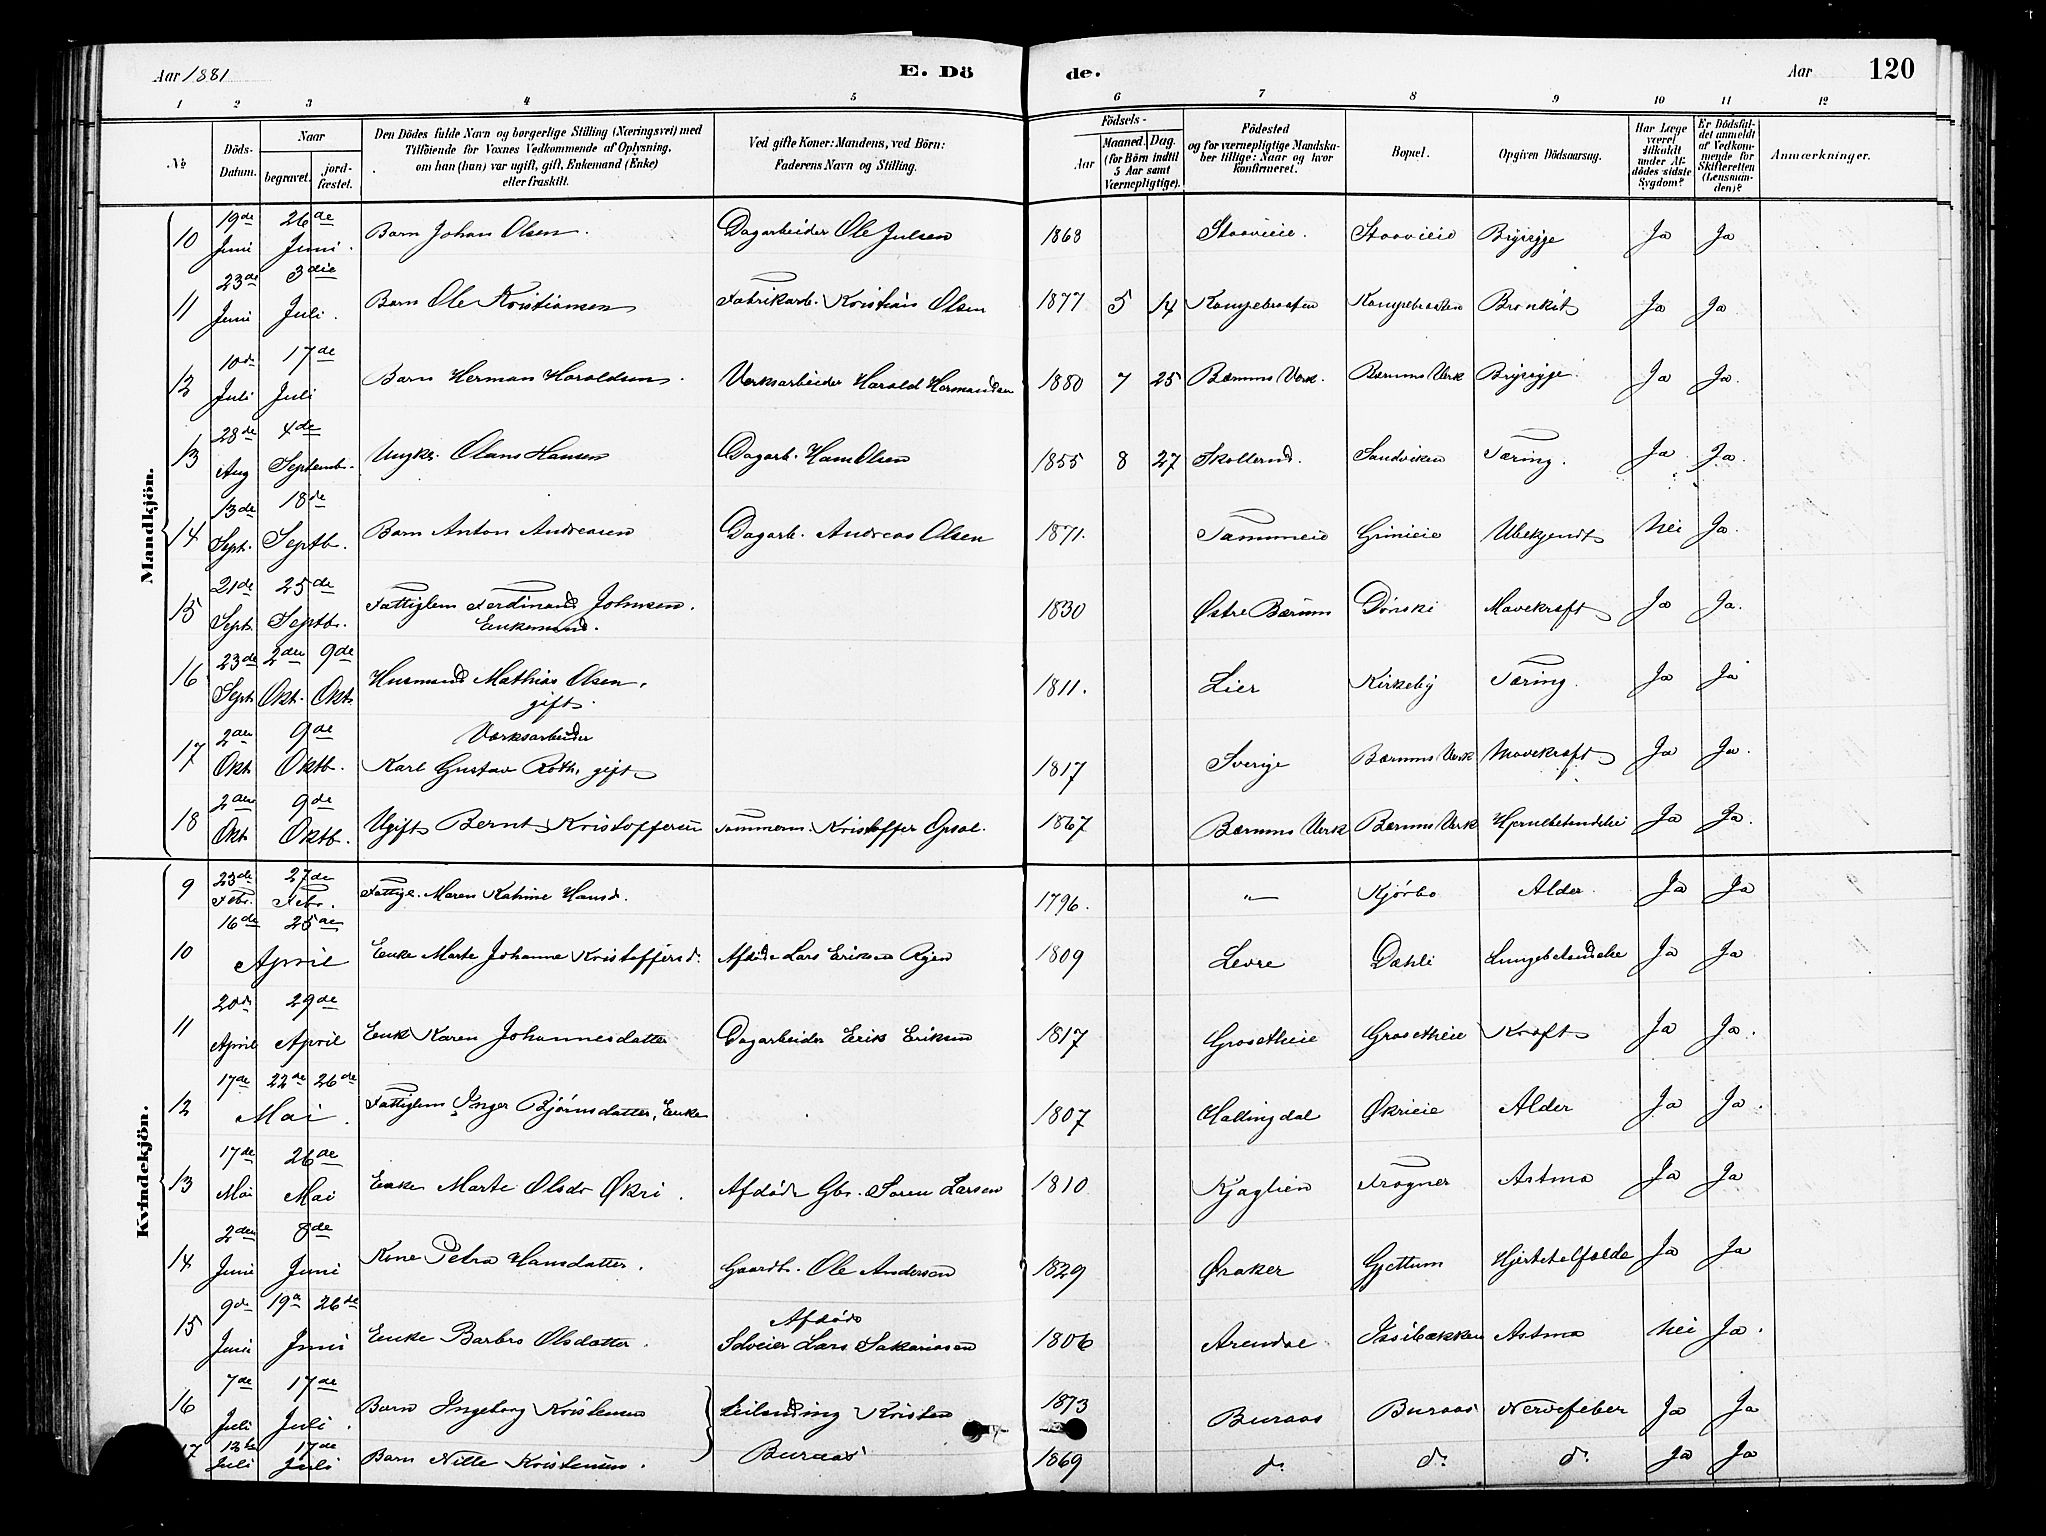 Aar 1881
E. Dö
de.
Aar
120
1 2 3 4 5 6 7 8 9 10 11 12
No
Döds-Datum.
Naar
begravet.
jord-fæstet.
Den Dödes fulde Navn og borgerlige Stilling (Næringsvei) med
Tilföiende for Voxnes Vedkommende af Oplysning,
om han (hun) var ugift, gift, Enkemand (Enke)
eller fraskilt.
Ved gifte Koner: Mandens, ved Börn:
Faderens Navn og Stilling.
Födsels-
Aar
Maaned. Dag.
(for Börn indtil 5 Aar samt Værnepligtige).
Födested
og for værnepligtige Mandska-
ber tillige: Naar og hvor
konfirmeret.
Bopæl.
Opgiven Dödsaarsag.
Har Læge været tilkaldt under Af-dödes sidste Sygdom?
Er Dödsfal-det anmeldt af Vedkom-mende for Skifteretten (Lensman-den)?
Anmærkninger.
Mandkjön.
10 19de Juni 26de Juni. Barn Johan Olsen. Dagarbeider Ole Julsen 1868 Staavieie. Staavieie Ja Ja
11 23de Juni 3die Juli. Barn Ole Kristiansen Fabrikarb. Kristian Olsen 1877 5 14 Kampebraaten Kampebraaten Bronkit Ja Ja.
12 10de Juli 17de Juli Barn Herman Haroldsen. Verksarbeider Harald Hermansen 1880 7 25 Bærums Verk. Bærums Verk Ja Ja.
13 28de Aug 4de Septemb. Ungkr. Olaus Hansen Dagarb. Hans Olsen 1855 8 27 Skollerud. Sandviken Tæring. Ja Ja.
14 13de Sept. 18de Septb. Barn Anton Andreasen Dagarb. Andreas Olsen 1871. Grinieie Ubekjendt Nei Ja.
15 21de Sept. 25de Septb. Fattiglem Ferdinand Johnsen. Enkemand. 1830 Østre Bærum Dønski Mavekræft Ja Ja.
16 23de Sept. 2den Okt. 9de Okt. Husmand Mathias Olsen, gift. 1811. Lier Kirkeby Tæring. Ja Ja
17 2den Okt. 9de Oktb. Værksarbeider Karl Gustav Roth, gift 1817 Sverige Bærums Verk Mavekræft Ja Ja.
18 2den Okt. 9de Oktb. Ugift Bernt Kristoffersen Tømmerm. Kristoffer Opsal. 1867 Bærums Verk Bærums Verk Ja Ja.
Kvindekjön.
9 23de Febr. 27de Febr. Fattigl. Maren Katrine Hansd. 1796. " Kjørbo Alder. Ja Ja
10 16de 25de April Enke Marte Johanne Kristoffersd. Afdøde Lars Eriksen Ryen 1809 Levre Dæhli Lungebetændelse Ja Ja
11 20de April 29de April Enke Karen Johannesdatter Dagarbeider Erik Eriksen 1817 Grosetheie Grosetheie Kræft Ja Ja.
12 17de 22de 26de Mai. Fattiglem Inger Bjørnsdatter, Enke 1807 Hallingdal Økrieie Alder Ja Ja.
13 17de Mai 26de Mai Enke Marte Olsdr Økri. Afdøde Gbr. Søren Larsen 1810 Kjaglien Frogner Astma Ja Ja
14 2den Juni 8de Juni Kone Petra Hansdatter. Gaardbr. Ole Andersen 1829 Øraker Gjettum Ja Ja
15 9de Juni 19de 26de Juni Enke Barbro Olsdatter. Afdøde Lars Sakariasen 1806 Arendal Astma Nei Ja.
16 7de Juli 17de Juli. Barn Ingeborg Kristensen Leilending Kristen Buraas 1873 Buraas Buraas Nervefeber Ja Ja
17 Juli 17de Juli Barn Kristensen. 1869 d. d. d. Ja Ja